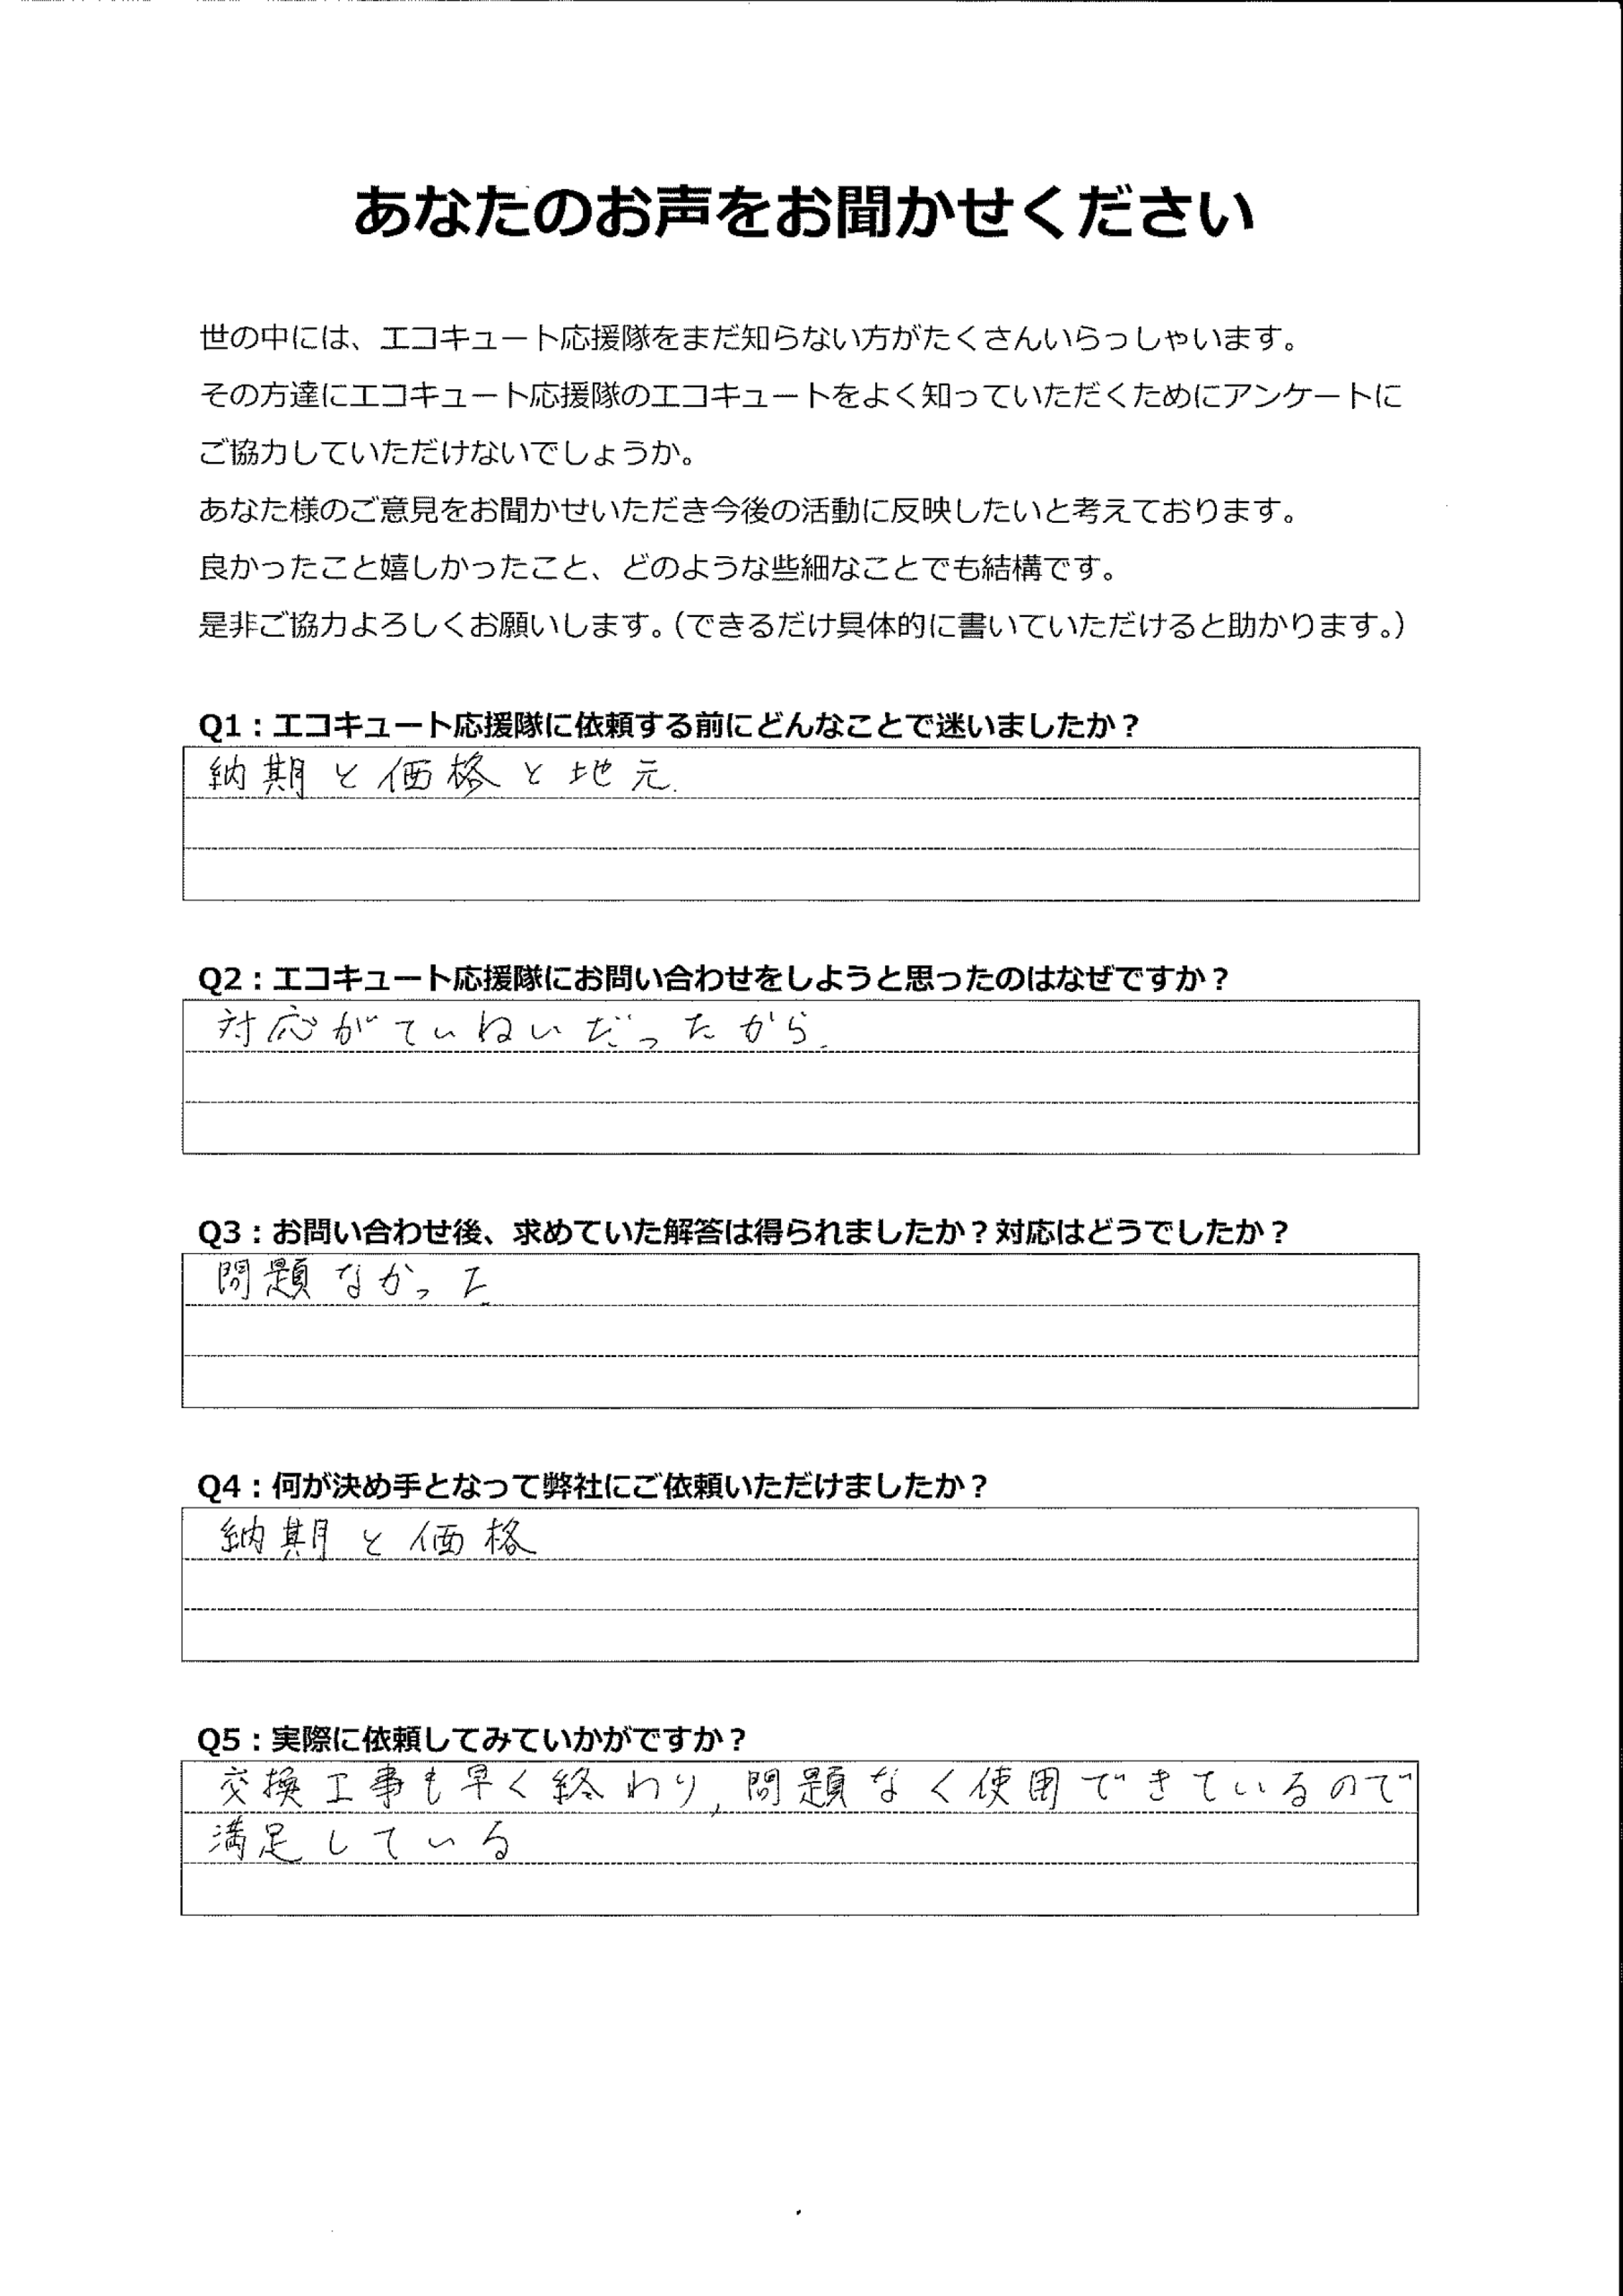 あなたのお声をお聞かせください
世の中には、エコキュート応援隊をまだ知らない方がたくさんいらっしゃいます。
その方達にエコキュート応援隊のエコキュートをよく知っていただくためにアンケートに
ご協力していただけないでしょうか。
あなた様のご意見をお聞かせいただき今後の活動に反映したいと考えております。
良かったこと嬉しかったこと、どのような些細なことでも結構です。
是非ご協力よろしくお願いします。（できるだけ具体的に書いていただけると助かります。）
Q1：エコキュート応援隊に依頼する前にどんなことで迷いましたか？
納期と価格と地元.
Q2：エコキュート応援隊にお問い合わせをしようと思ったのはなぜですか？
対応がていねいだったから.
Q3：お問い合わせ後、求めていた解答は得られましたか？対応はどうでしたか？
問題なかった
Q4：何が決め手となって弊社にご依頼いただけましたか？
納期と価格
Q5：実際に依頼してみていかがですか？
交換工事も早く終わり,問題なく使用できているので
満足している